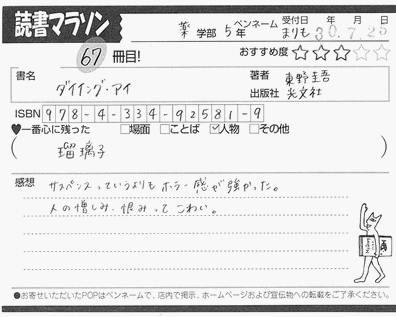 読書マラソン
薬 学部 5年 ペンネーム まりも 受付日 30年 7月 25日
67 冊目! おすすめ度 ☆☆☆☆☆
書名 ダイイング・アイ 著者 東野圭吾
出版社 光文社
ISBN 978-4-334-92581-9
♥一番心に残った □場面 □ことば ☑人物 □その他
( 瑠璃子 )
感想 サスペンスっていうよりもホラー感が強かった。
人の憎しみ、恨みってこわい。
●お寄せいただいたPOPはペンネームで、店内で掲示、ホームページおよび宣伝物への転載をご了承ください。